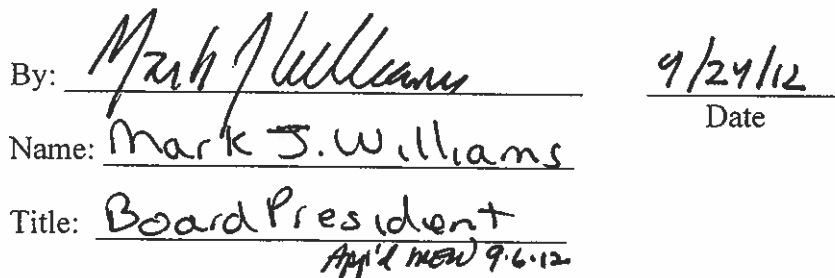 By: Mark J Williams 9/24/12
Date
Name: Mark J. Williams
Title: Board President
App'd MEW 9.6.12